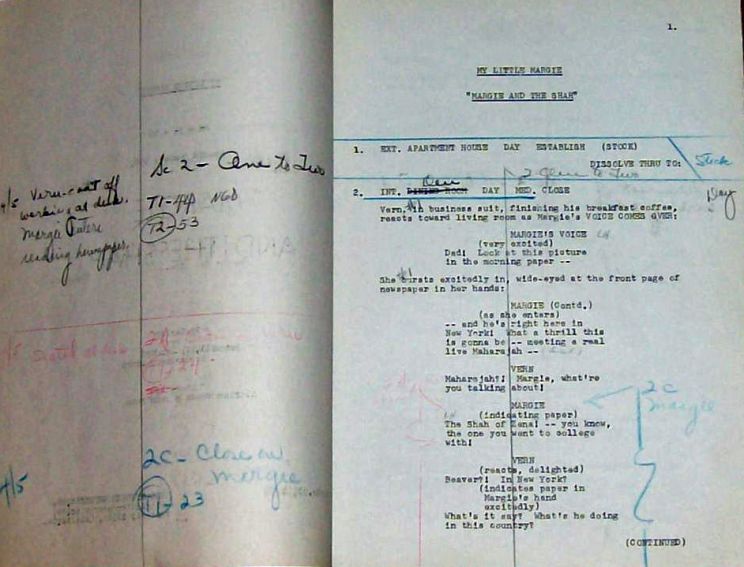 Sc 2 - One to Two
4/5 Vern-coat off
working at desk.
Margie enters
reading newspaper.
T1-44 NGD
T2-53
4/5
2C - Close on
Margie
T1-23
1.
MY LITTLE MARGIE
"MARGIE AND THE SHAH"
1. EXT. APARTMENT HOUSE DAY ESTABLISH (STOCK)
DISSOLVE THRU TO:
Stock
Den
2 One to Two
2. INT. DINING ROOM DAY MED. CLOSE
Day
Vern, in business suit, finishing his breakfast coffee,
reacts toward living room as Margie's VOICE COMES OVER:
MARGIE'S VOICE
(very excited)
Dad! Look at this picture
in the morning paper --
She bursts excitedly in, wide-eyed at the front page of
newspaper in her hands:
MARGIE (Contd.)
(as she enters)
-- and he's right here in
New York! What a thrill this
is gonna be -- meeting a real
live Maharajah --
VERN
Maharajah?! Margie, what're
you talking about!
2C
Margie
MARGIE
(indicating paper)
The Shah of Zena! -- you know,
the one you went to college
with!
VERN
(reacts, delighted)
Beaver?! In New York?
(indicates paper in
Margie's hand
excitedly)
What's it say? What's he doing
in this country?
(CONTINUED)